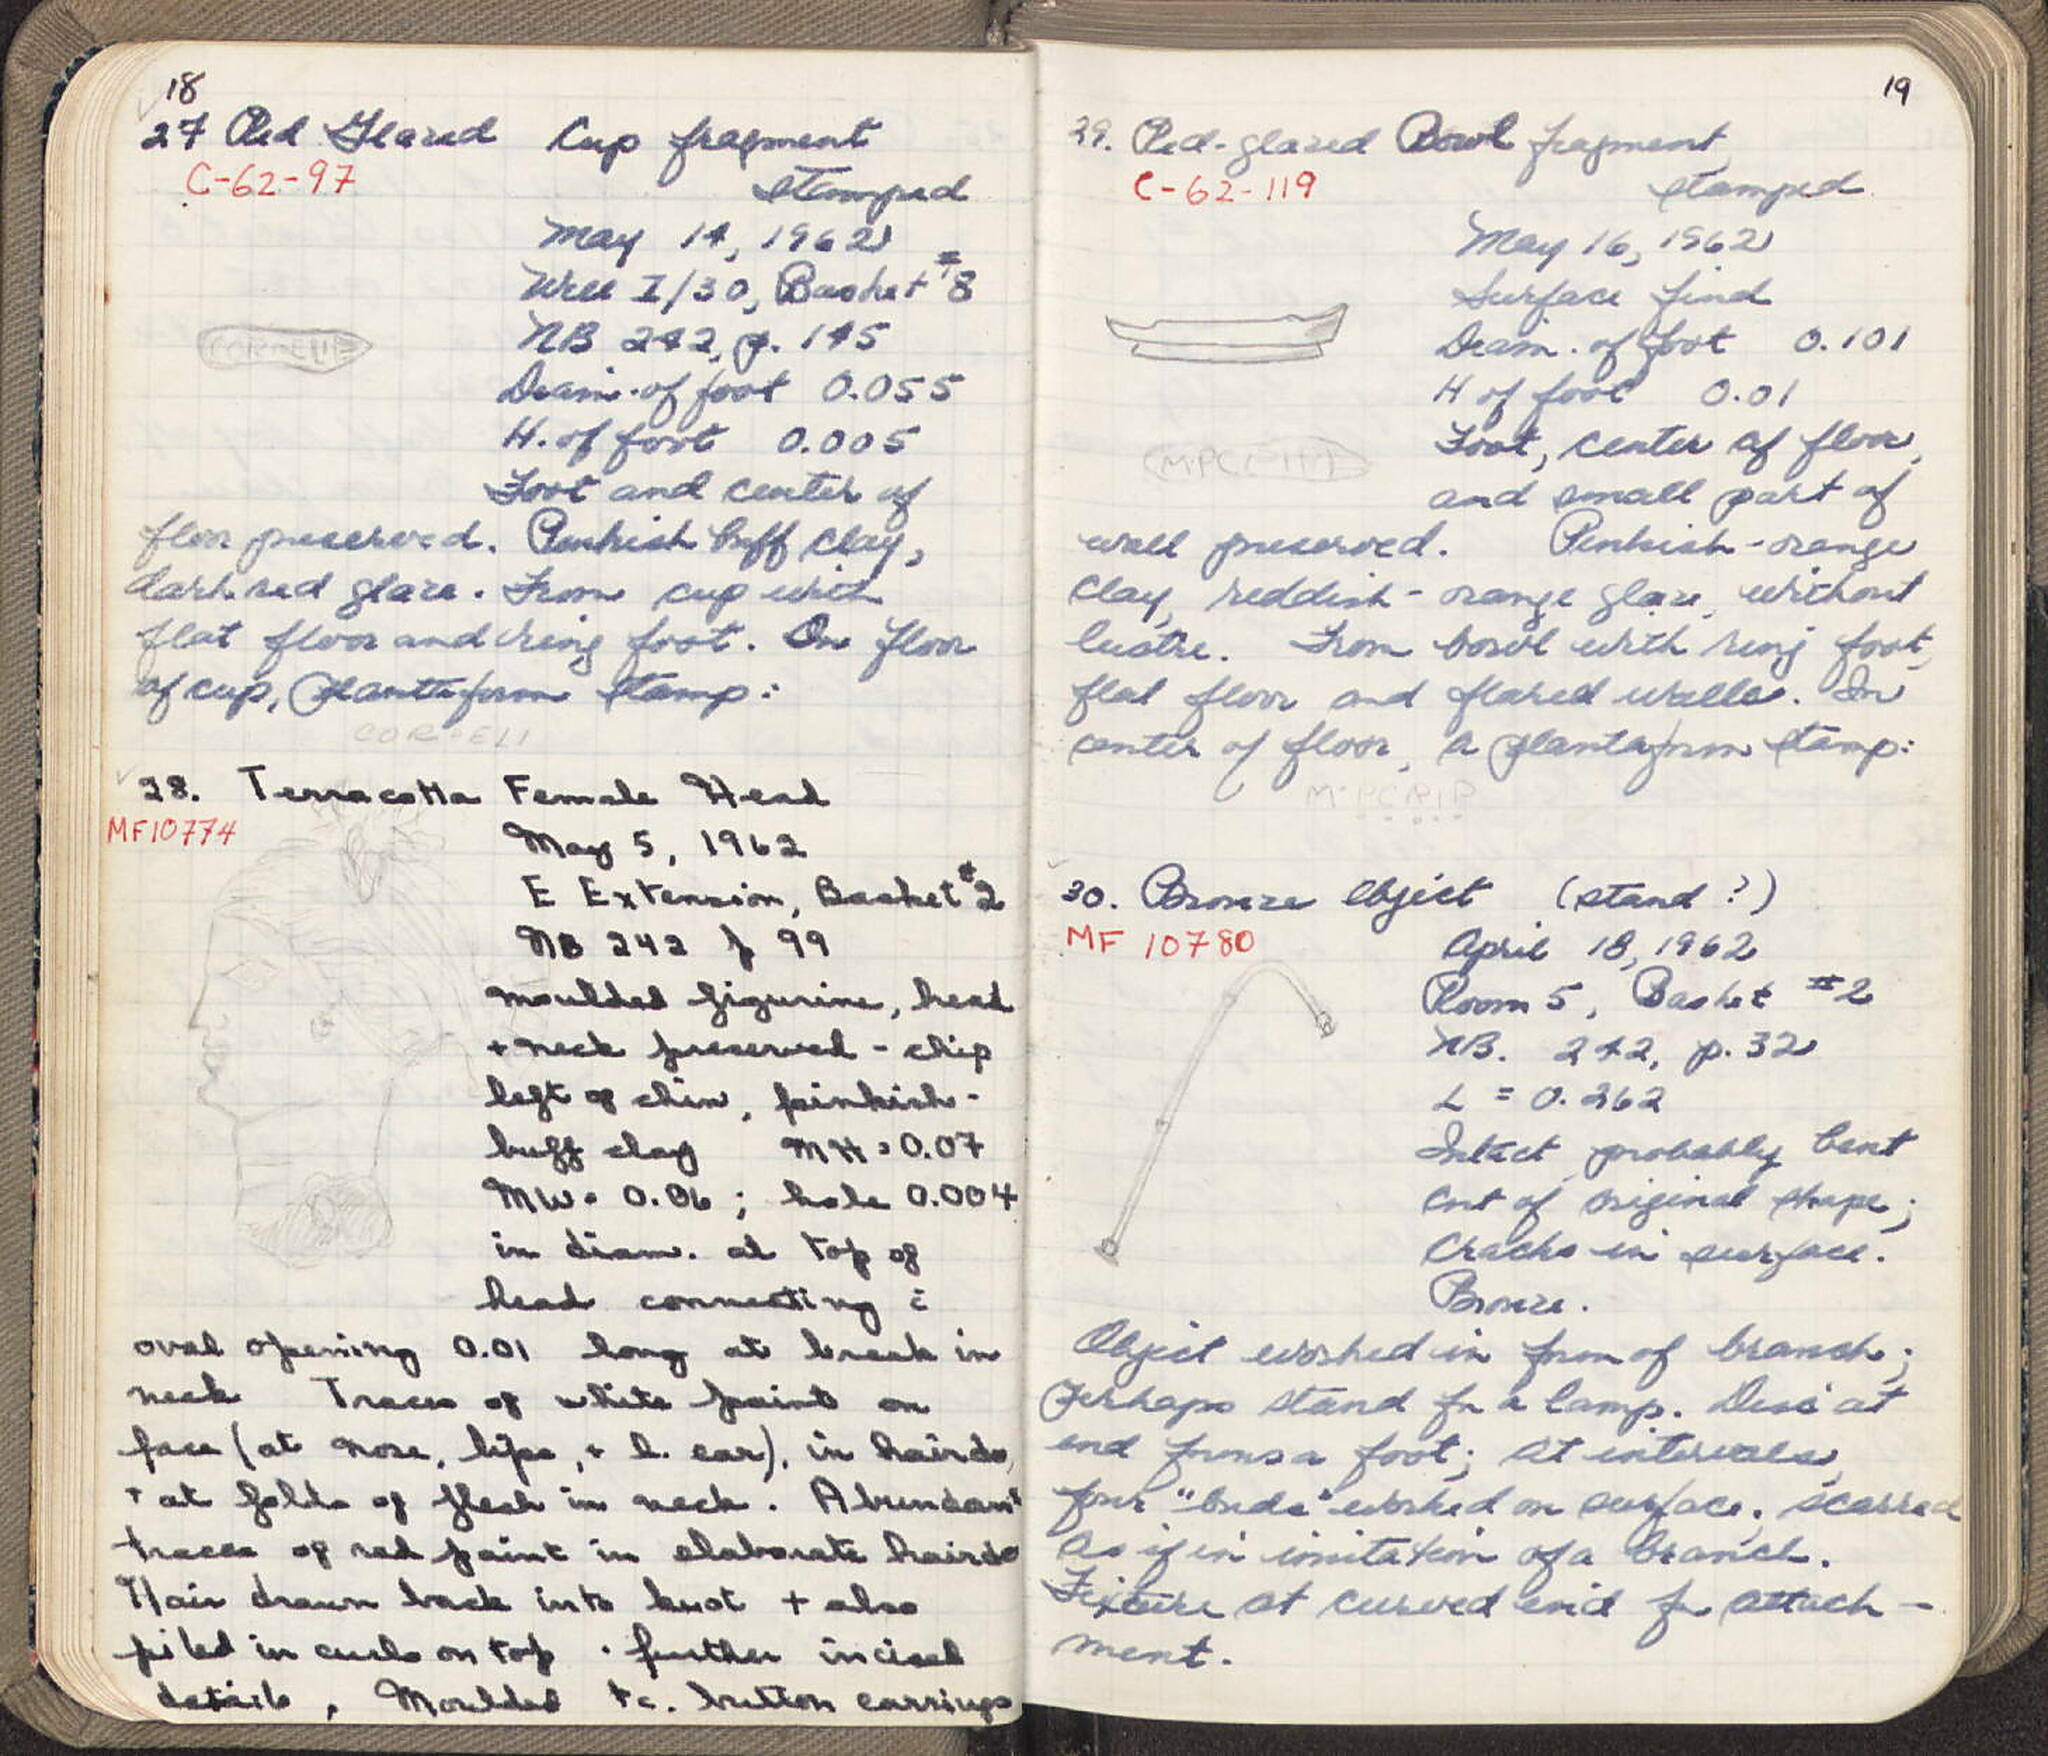 18
27 Red Glazed Cup fragment
C-62-97
stamped
May 14, 1962
Well I/30, Basket #8
NB 242, p. 145
Diam. of foot 0.055
H. of foot 0.005
Foot and center of
floor preserved. Pinkish buff clay,
dark red glaze. From cup with
flat floor and ring foot. On floor
of cup, plantaform stamp:
COR·ELI
28. Terracotta Female Head
MF10774
May 5, 1962
E Extension, Basket #2
NB 242 p 99
moulded figurine, head
+ neck preserved - chip
left of chin, pinkish-
buff clay MH = 0.07
MW = 0.06 ; hole 0.004
in diam. at top of
head connecting c̄
oval opening 0.01 long at break in
neck Traces of white paint on
face (at nose, lips, + l. ear), in hairdo,
+ at folds of flesh in neck. Abundant
traces of red paint in elaborate hairdo
Hair drawn back into knot + also
piled in curls on top . further incised
details, Moulded tc. button earrings
19
29. Red-glazed Bowl fragment,
C-62-119
stamped
May 16, 1962
Surface find
Diam. of foot 0.101
H of foot 0.01
Foot, center of floor,
and small part of
wall preserved. Pinkish-orange
clay, reddish-orange glaze, without
lustre. From bowl with ring foot,
flat floor and flared walls. In
center of floor, a plantaform stamp:
M·PCRIP
30. Bronze Object (stand?)
MF 10780
April 18, 1962
Room 5, Basket #2
NB. 242, p. 32
L = 0.262
Intact, probably bent
out of original shape;
cracks in surface.
Bronze.
Object worked in form of branch;
perhaps stand for a lamp. Disc at
end forms a foot; at intervals,
four "buds" worked on surface; scarred
as if in imitation of a branch.
Fixture at curved end for attach-
ment.